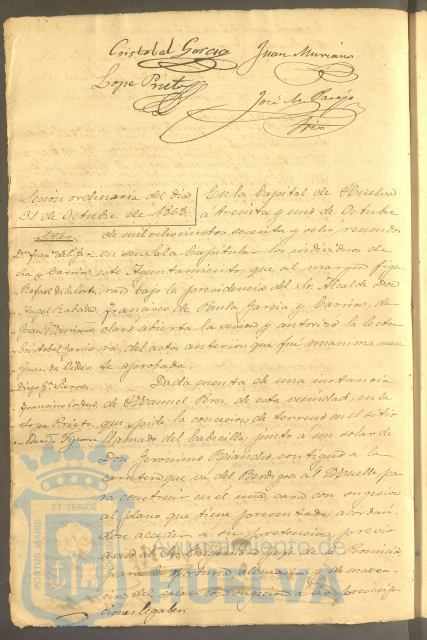 Cristobal Garcia Juan Muriano
Lope Prieto
José M. Parejo
Srio
Sesion ordinaria del dia
31 de Octubre de 1868.
Sres.
Dn. Fran.co de P. Gar-
cia y Carrion
Rafael de la Corte
Angel Rabadan
Juan Muriano
Cristobal Garcia
Juan de
Diego Gz. Serrano
Francisco
Lope Prieto
Eduardo Figueroa
En la Capital de Huelva
a treinta y uno de Octubre
de mil ochocientos sesenta y ocho, reunidos
en su Sala Capitular los individuos de
este Ayuntamiento, que al margen figu-
ran bajo la presidencia del Sr. Alcalde Don
Francisco de Paula Garcia y Carrion, de-
claró abierta la sesion y autorizó la lectu-
ra, del acta anterior que fué unanimemen-
te aprobada.
Dada cuenta de una instancia
de Manuel de esta vecindad, en la
que pide la concesion de terreno en el sitio
llamado del Cabecillo, junto á un solar de
Don Geronimo contiguo á la
carretera que va del al Muelle pa-
ra construir en el una casa con sugecion
al plano que tiene presentado, acordan-
dose acceder a su pretencion previo
de la Provincia
para la y demarca-
cion del solar con sugecion a las prescrip-
ciones legales.
PORTUS MARIS
ET TERRAE
Ayuntamiento de
HUELVA